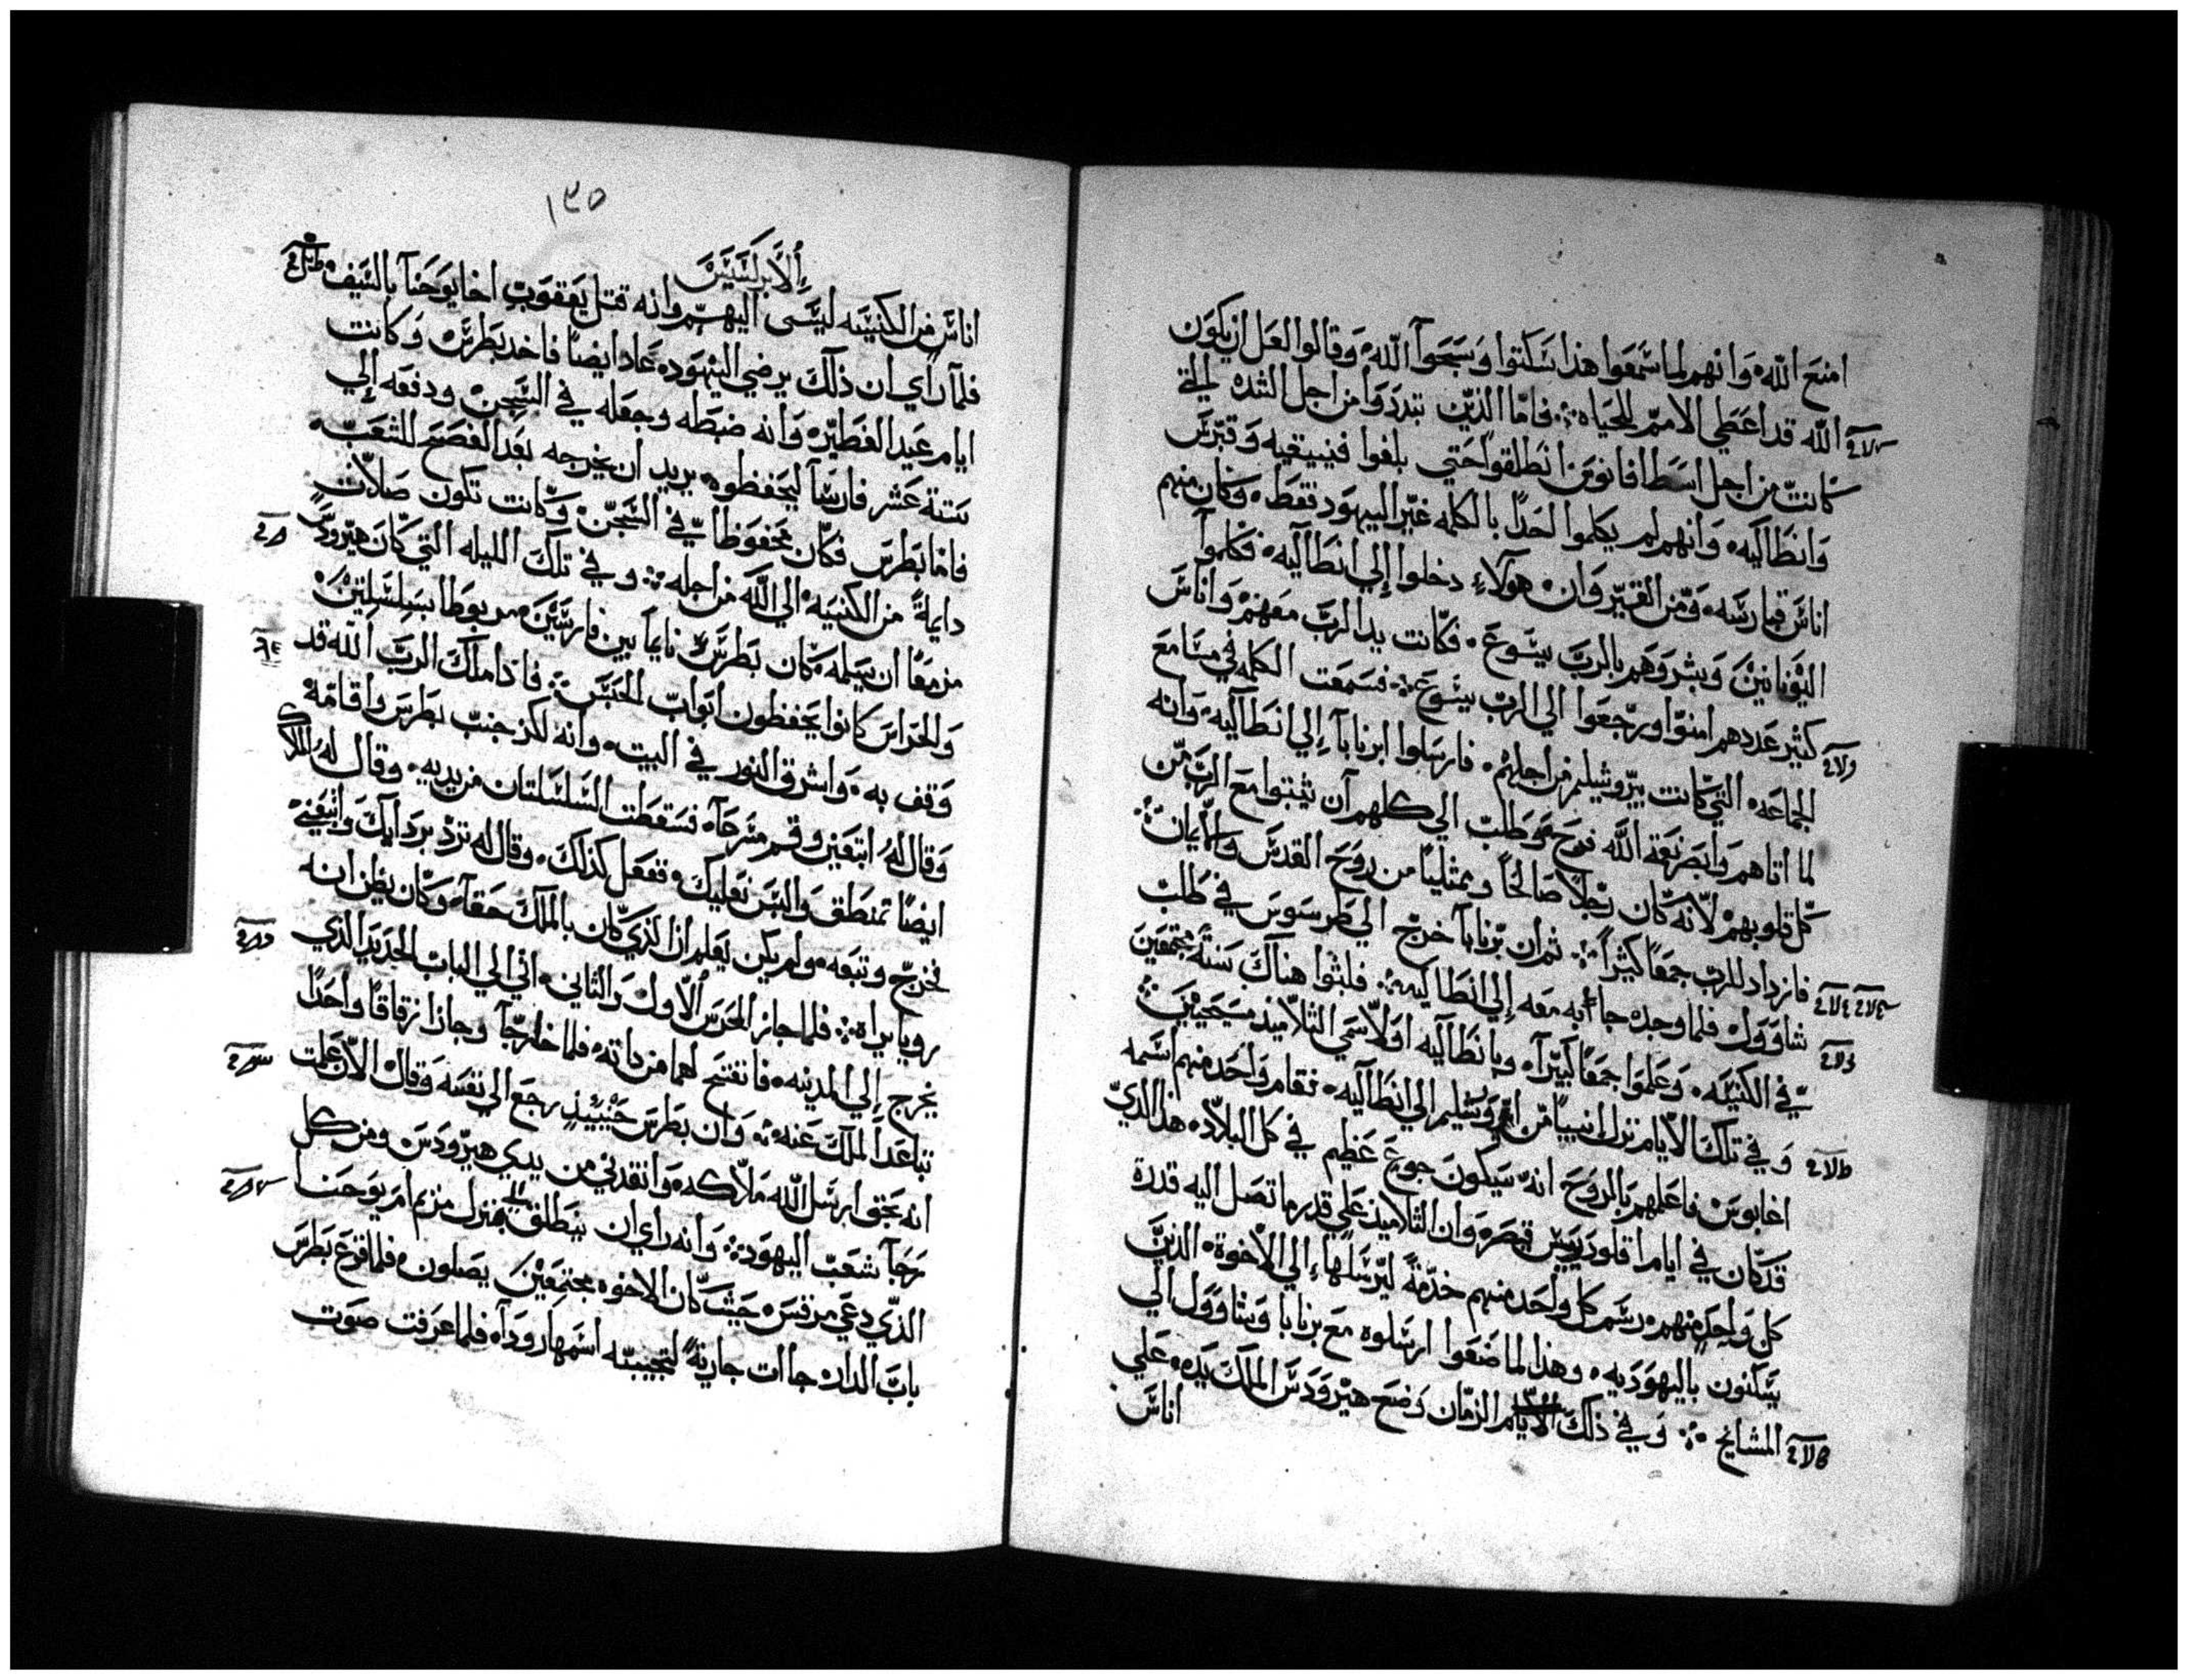 امنع الله وانهم لما سمعوا هذا سكتوا وسبحوا الله وقالوا لعل ان يكون
الله قد اعطي الامم الحياه فاما الذين تبددوا من اجل الشده التي
كانت من اجل اسطافانوس انطلقوا حتي بلغوا فينيقيه وقبرس
وانطاكيه وانهم لم يكلموا احدا بالكلمه غير اليهود فقط وكان منهم
اناس قبارسه ومن القير وان هولاء دخلوا إلي انطاكيه فكلموا
اليونانين وبشروهم بالرب يسوع فكانت يد الرب معهم واناس
كثير عددهم امنوا ورجعوا الي الرب يسوع فسمعت الكلمه في مسامع
الجماعه التي كانت بيروشليم من اجلهم فارسلوا ابرنابا إلي انطاكيه وانه
لما اتاهم وابصر نعمة الله فرح وطلب الي كلهم ان يثبتوا مع الرب من
كل قلوبهم لانه كان رجلا صالحا وممتليا من روح القدس والايمان
فازداد للرب جمعا كثيرا ثم ان برنابا خرج الي طرسوس في طلب
شاوول فلما وجده جاء به معه إلي انطاكيه فلبثوا هناك سنة مجتمعين
في الكنيسه وعلموا جمعا كبيرا وبانطاكيه اولا سمي التلاميذ مسيحيين
وفي تلك الايام نزل انبيا من اروشليم الي انطاكيه فقام واحد منهم اسمه
اغابوس فاعلمهم بالروح انه سيكون جوع عظيم في كل البلاد هذا الذي
قد كان في ايام اقلوديس قيصر وان التلاميذ علي قدر ما تصل اليه قدرة
كل واحد منهم رسم كل واحد منهم خدمة ليرسلها إلي الاخوة الذين
يسكنون باليهوديه وهذا لما صنعوا ارسلوه مع برنابا وشاوول الي
المشايخ وفي ذلك الزمان وضع هيرودس الملك يده علي
اناس
١٣٥
الابركسيس
اناس من الكنيسه ليسي اليهم وانه قتل يعقوب اخا يوحنا بالسيف
فلما راي ان ذلك يرضي اليهود عاد ايضا فاخد بطرس وكانت
ايام عيد الفطير وانه ضبطه وجعله في السجن ودفعه إلي
ستة عشر فارسا ليحفظوه يريد ان يخرجه بعد الفصح للشعب
فاما بطرس فكان محفوظا في السجن وكانت تكون صلات
دايمة من الكنيسه الي الله من اجله وفي تلك الليله التي كان هيرودس
مزمعا ان يسلمه كان بطرس نايما بين فارسين مربوطا بسلسلتين
والحراس كانوا يحفظون ابواب الحبس فاذا ملك الرب الله قد
وقف به واشرق النور في البيت وانه لكز جنب بطرس واقامه
وقال له ابتعني وقم مسرعا فسقطت السلسلتان من يديه وقال له الملاك
ايضا تمنطق والبس نعليك ففعل كذلك وقال له تردي برداىك واتبعني
فخرج وتبعه ولم يكن يعلم ان الذي كان بالملك حقا وكان يظن انه
رويا يراه فلما جاز الحرس الاول والثاني اتي الي الباب الحديد الذي
يخرج إلي المدينه فانفتح لهما من ذاته فلما خارجا وجازا زقاقا واحدا
تباعدا الملك عنه وان بطرس حينيذ رجع الي نفسه وقال الان علمت
انه بحق ارسل الله ملاكه وانقدني من يدي هيرودس ومن كل
رجا شعب اليهود وانه راي ان ينطلق الي منزل مريم ام يوحنا
الذي دعي مرقس حيث كان الاخوه مجتمعين يصلون فلما قرع بطرس
باب الدار جاات جارية لتجيبه اسمها رودا فلما عرفت صوت